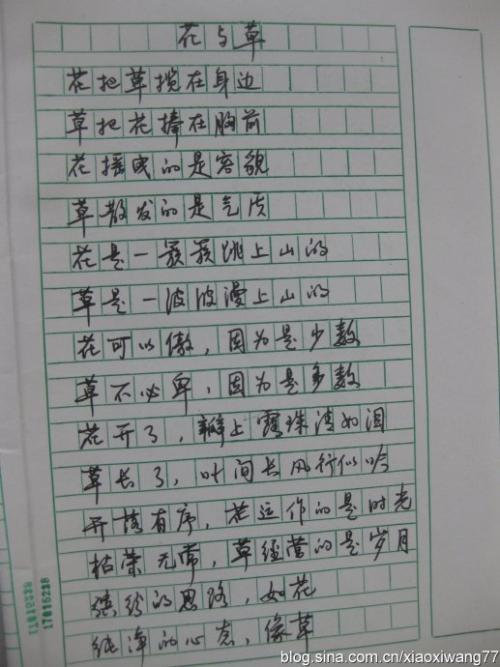 花与草
花把草揽在身边
草把花捧在胸前
花摇曳的是容貌
草散发的是气质
花是一簇簇跳上山的
草是一波波漫上山的
花可以傲，因为是少数
草不必卑，因为是多数
花开了，瓣上露珠清如泪
草长了，叶间长风行似吟
开落有序，花运作的是时光
枯荣无常，草经营的是岁月
缤纷的思路，如花
纯净的心意，像草
17015238
17015238
blog.sina.com.cn/xiaoxiwang77